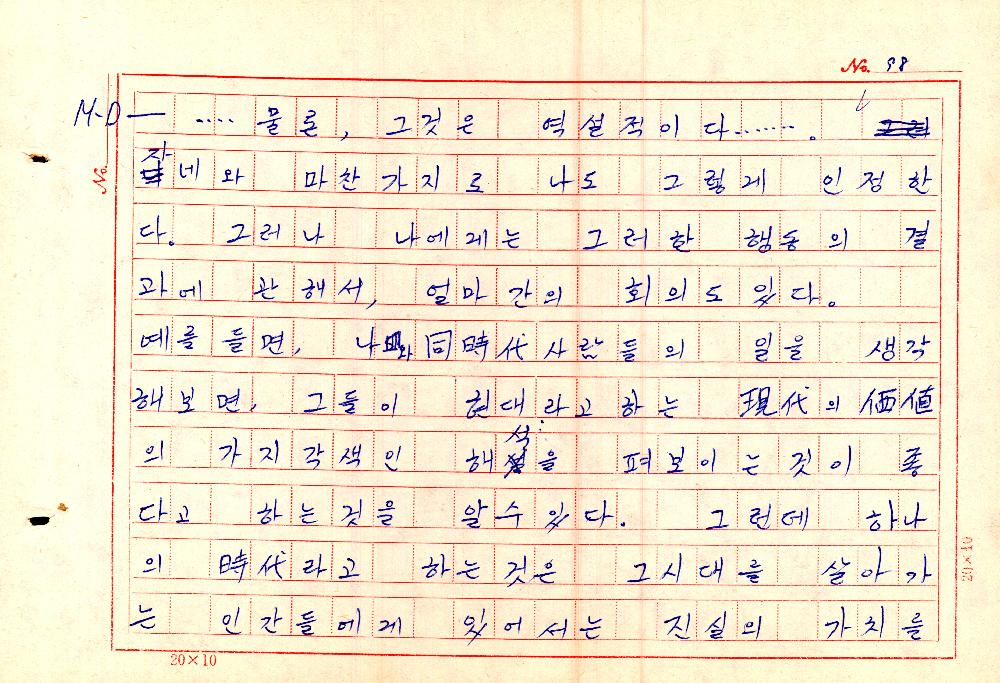 No. 98
M-D— ‥‥물론, 그것은 역설적이다‥‥‥.
자네와 마찬가지로 나도 그렇게 인정한
다. 그러나 나에게는 그러한 행동의 결
과에 관해서, 얼마간의 회의도 있다.
예를 들면, 나와 同時代 사람들의 일을 생각
해보면, 그들이 현대라고 하는 現代의 価値
의 가지각색인 해석을 펴보이는 것이 좋
다고 하는것을 알수있다. 그런데 하나
의 時代라고 하는것은 그시대를 살아가
는 인간들에게 있어서는 진실의 가치를
No.
20×10
20×10